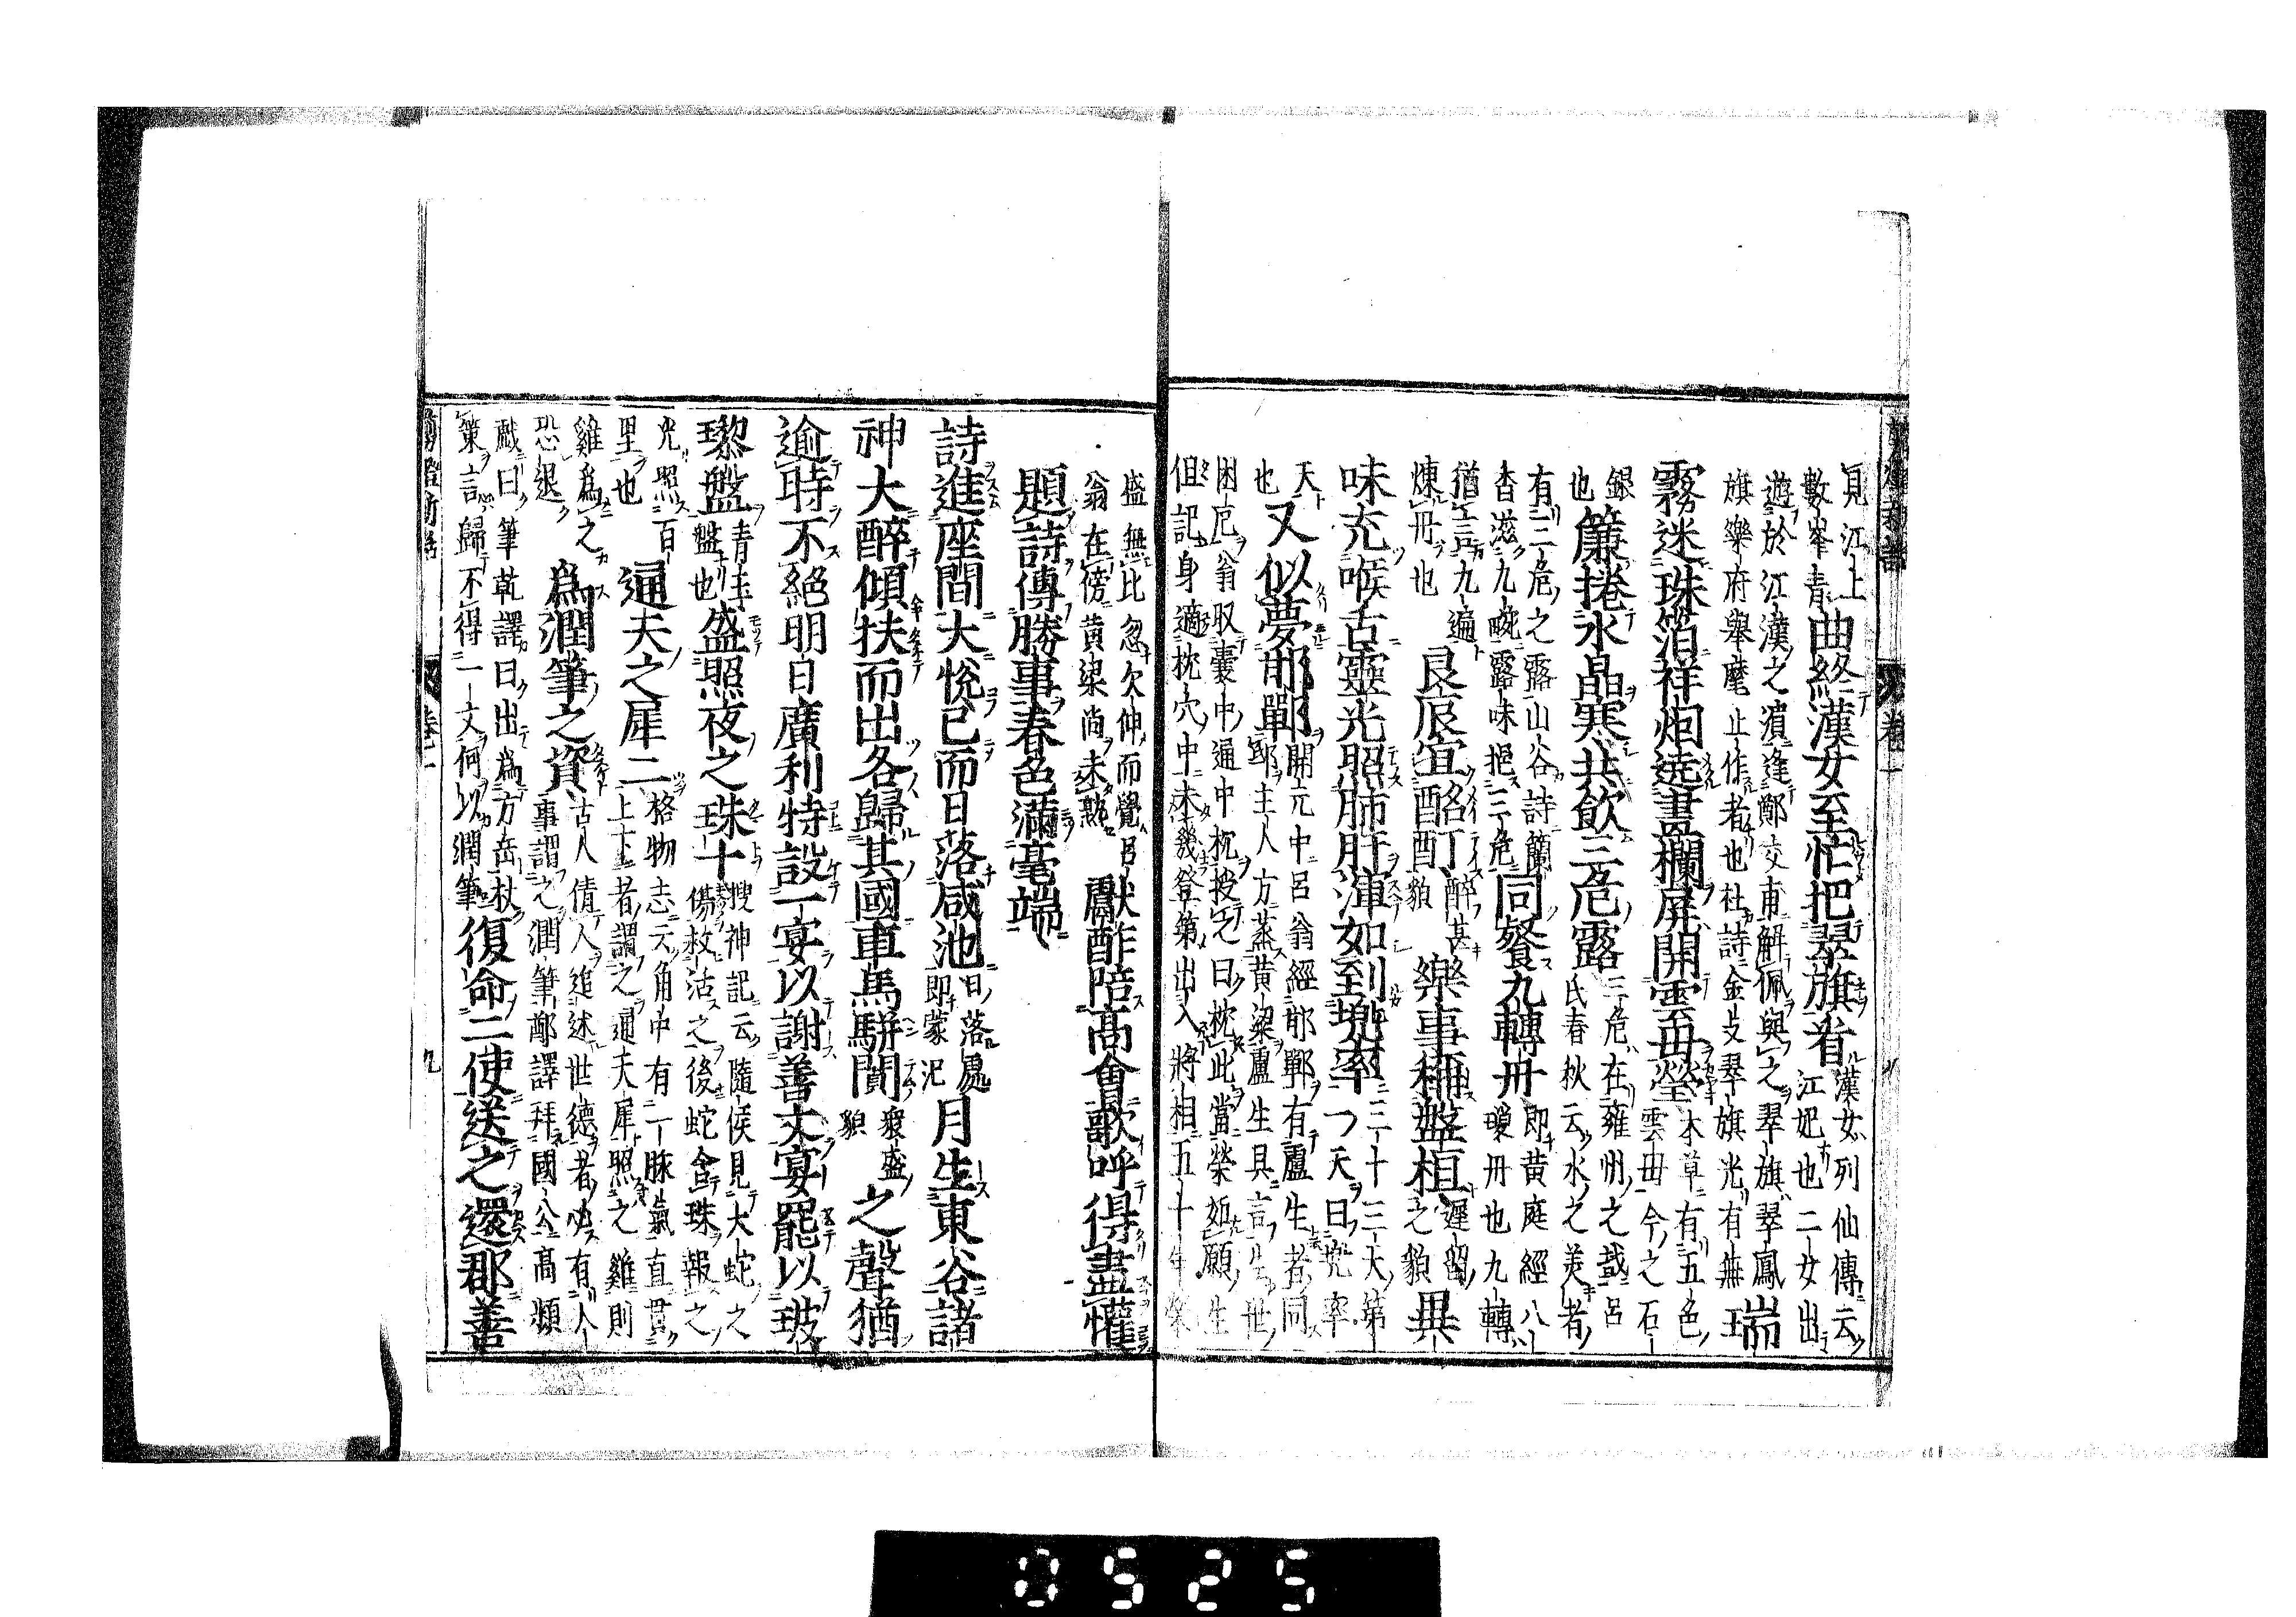 見江上
數峯青曲終漢女至忙把翠旗看漢女列仙傳云
江妃也二女出
遊於江漢之濱逢鄭交甫解佩與之翠旗翠鳳
旗樂府舉麾止作者也杜詩金支翠旗光有無瑞
霧迷珠箔祥烟遶畫欄屏開雲母瑩本草有五色
雲母今之石
銀
也簾捲水晶寒共飲三危露三危在雍州之域呂
氏春秋云水之美者
有三危之露山谷詩蘭
杳滋九畹露味挹三危同餐九轉丹即黃庭經八
瓊丹也九轉
猶言九遍
煉丹也良辰宜酩酊醉甚
貌樂事稱盤桓遲留
之貌異
味充喉舌靈光照肺肝渾如到兜率三十三天第
一天曰兜率
天
也又似夢邯鄲開元中呂翁經邯鄲有盧生者同
邸主人方蒸黃粱盧生具言生世
困厄翁取囊中通中枕授之曰枕此當榮如願生
但記身適枕穴中未幾登第出入將相五十年榮
盛無比忽欠伸而覺呂
翁在傍黃粱尚未熟獻酢陪高會歌呼得盡懽
題詩傳勝事春色滿毫端
詩進座間大悅已而日落咸池日落處
即蒙汜月生東谷諸
神大醉傾扶而出各歸其國車馬駢闐衆盛
貌之聲猶
逾時不絕明日廣利特設一宴以謝善文宴罷以玻
瓈盤青玉
盤也盛照夜之珠十搜神記云隨侯見大蛇之
傷救活之後蛇含珠報之
光照百
里也通天之犀二格物志云角中有一脉氣直貫
上下者謂之通天犀照之雞則
雞爲之
恐退爲潤筆之資古人倩人追述世德者必有人
事謂之潤筆鄭譯拜國公高熲
戲曰筆乾譯曰出爲方岳杖
策言歸不得一文何以潤筆復命二使送之還郡善